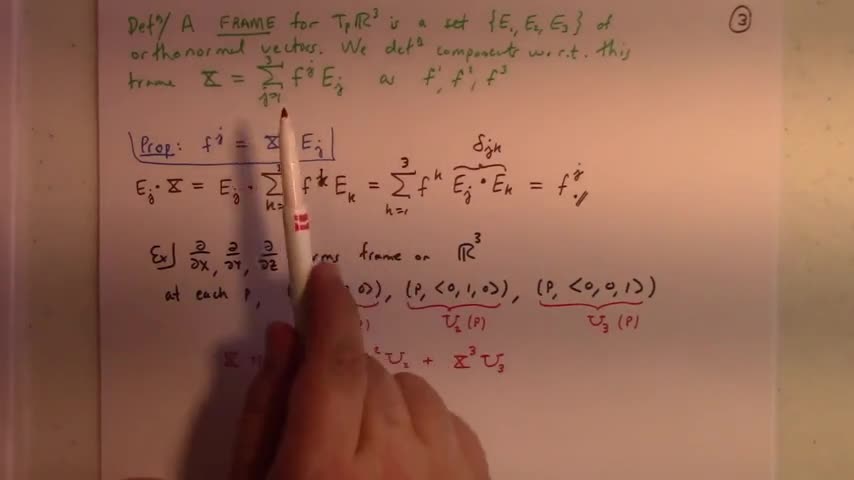 ③
Def^n/ A FRAME for T_pℝ^3 is a set {E_1, E_2, E_3} of
orthonormal vectors. We def^n components w.r.t. this
frame X = Σ_{j=1}^3 f^j E_j as f^1, f^1, f^3
Prop: f^j = X E_j
E_j · X = E_j · Σ f^k E_k = Σ_{k=1}^3 f^k E_j · E_k = f^j //
δ_{jk}
Ex] ∂/∂x, ∂/∂Y, ∂/∂z rms frame on ℝ^3
at each P, 0>), (P, <0, 1, 0>), (P, <0, 0, 1>)
P) U_2 (P) U_3 (P)
X ^2 U_2 + X^3 U_3